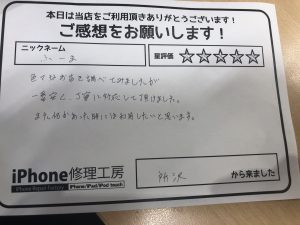 本日は当店をご利用頂きありがとうございます!
ご感想をお願いします!
ニックネーム
ふーま
星評価 ☆☆☆☆☆
色々なお店を調べてみましたが
一番安く、丁寧に対応して頂けました。
また何かあった時には利用したいと思います。
iPhone修理工房
iPhone Repair Factory
iPhone/iPad/iPod touch
所沢
から来ました